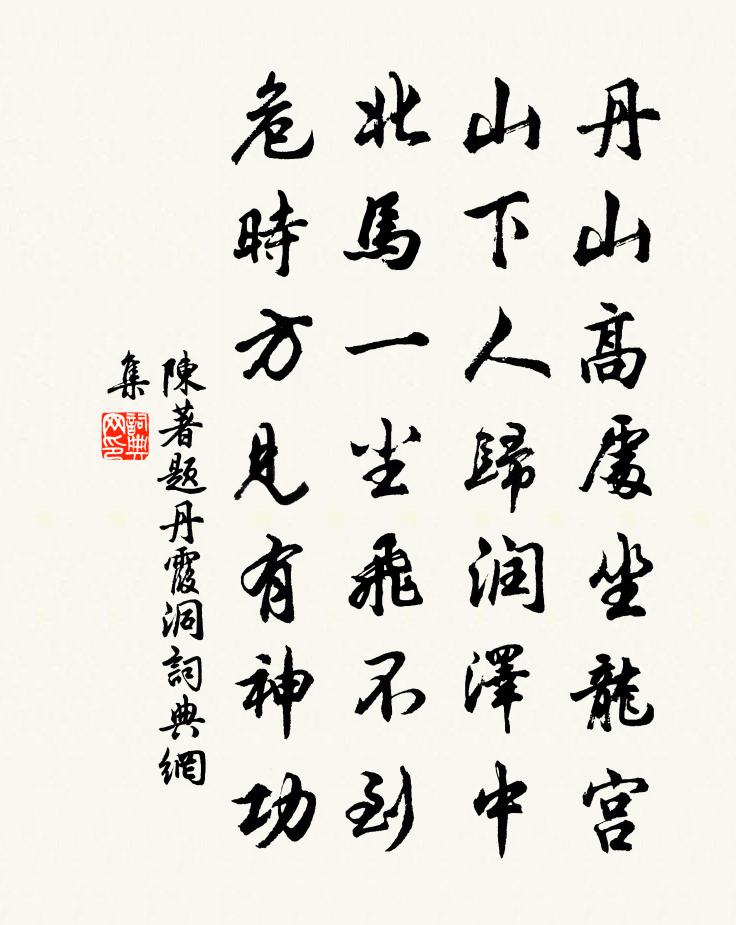 丹山高處坐龍宮
山下人歸润澤中
北馬一尘飛不到
危時方見有神功
陳著题丹霞洞詞典網
集
詞典
网印